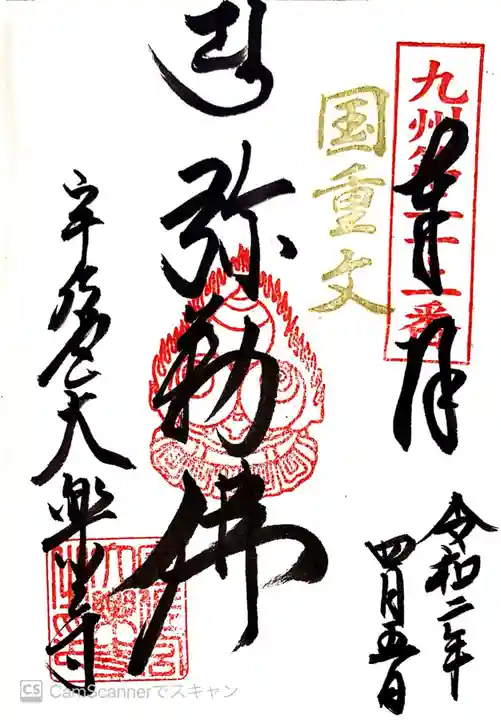 九州第二十二番
奉拝
令和二年
四月五日
国重文
弥勒佛
宇佐大楽寺
CS CamScannerでスキャン